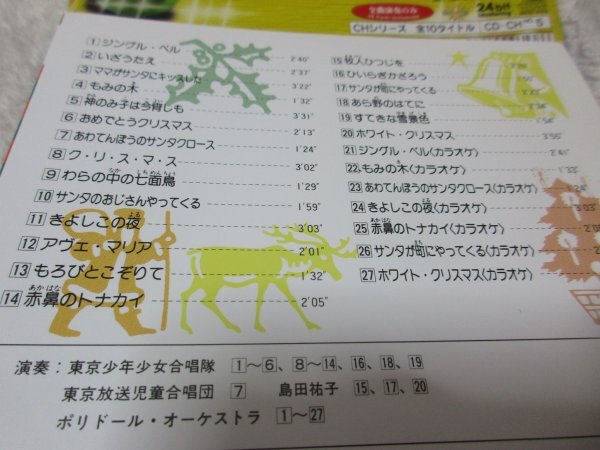 全曲演奏のみ
24bit
CHシリーズ 全10タイトル CD-CH
1 ジングル・ベル 2'40"
2 いざうたえ 2'37"
3 ママがサンタにキッスした 3'22"
4 もみの木 1'32"
5 神のみ子は今宵しも 3'31"
6 おめでとうクリスマス 2'13"
7 あわてんぼうのサンタクロース 1'24"
8 ク・リ・ス・マ・ス 3'02"
9 わらの中の七面鳥 1'29"
10 サンタのおじさんやってくる 1'59"
11 きよしこの夜 3'03"
12 アヴェ・マリア 2'01"
13 もろびとこぞりて 1'32"
14 赤鼻のトナカイ 2'05"
15 牧人ひつじを
16 ひいらぎかざろう
17 サンタが町にやってくる
18 あら野のはてに
19 すてきな雪景色
20 ホワイト・クリスマス 3'55"
21 ジングル・ベル〈カラオケ〉 2'41"
22 もみの木〈カラオケ〉 1'33"
23 あわてんぼうのサンタクロース〈カラオケ〉 1'24"
24 きよしこの夜〈カラオケ〉
25 赤鼻のトナカイ〈カラオケ〉
26 サンタが町にやってくる〈カラオケ〉
27 ホワイト・クリスマス〈カラオケ〉
演奏：東京少年少女合唱隊 1〜6、8〜14、16、18、19
東京放送児童合唱団 7 島田祐子 15、17、20
ポリドール・オーケストラ 1〜27